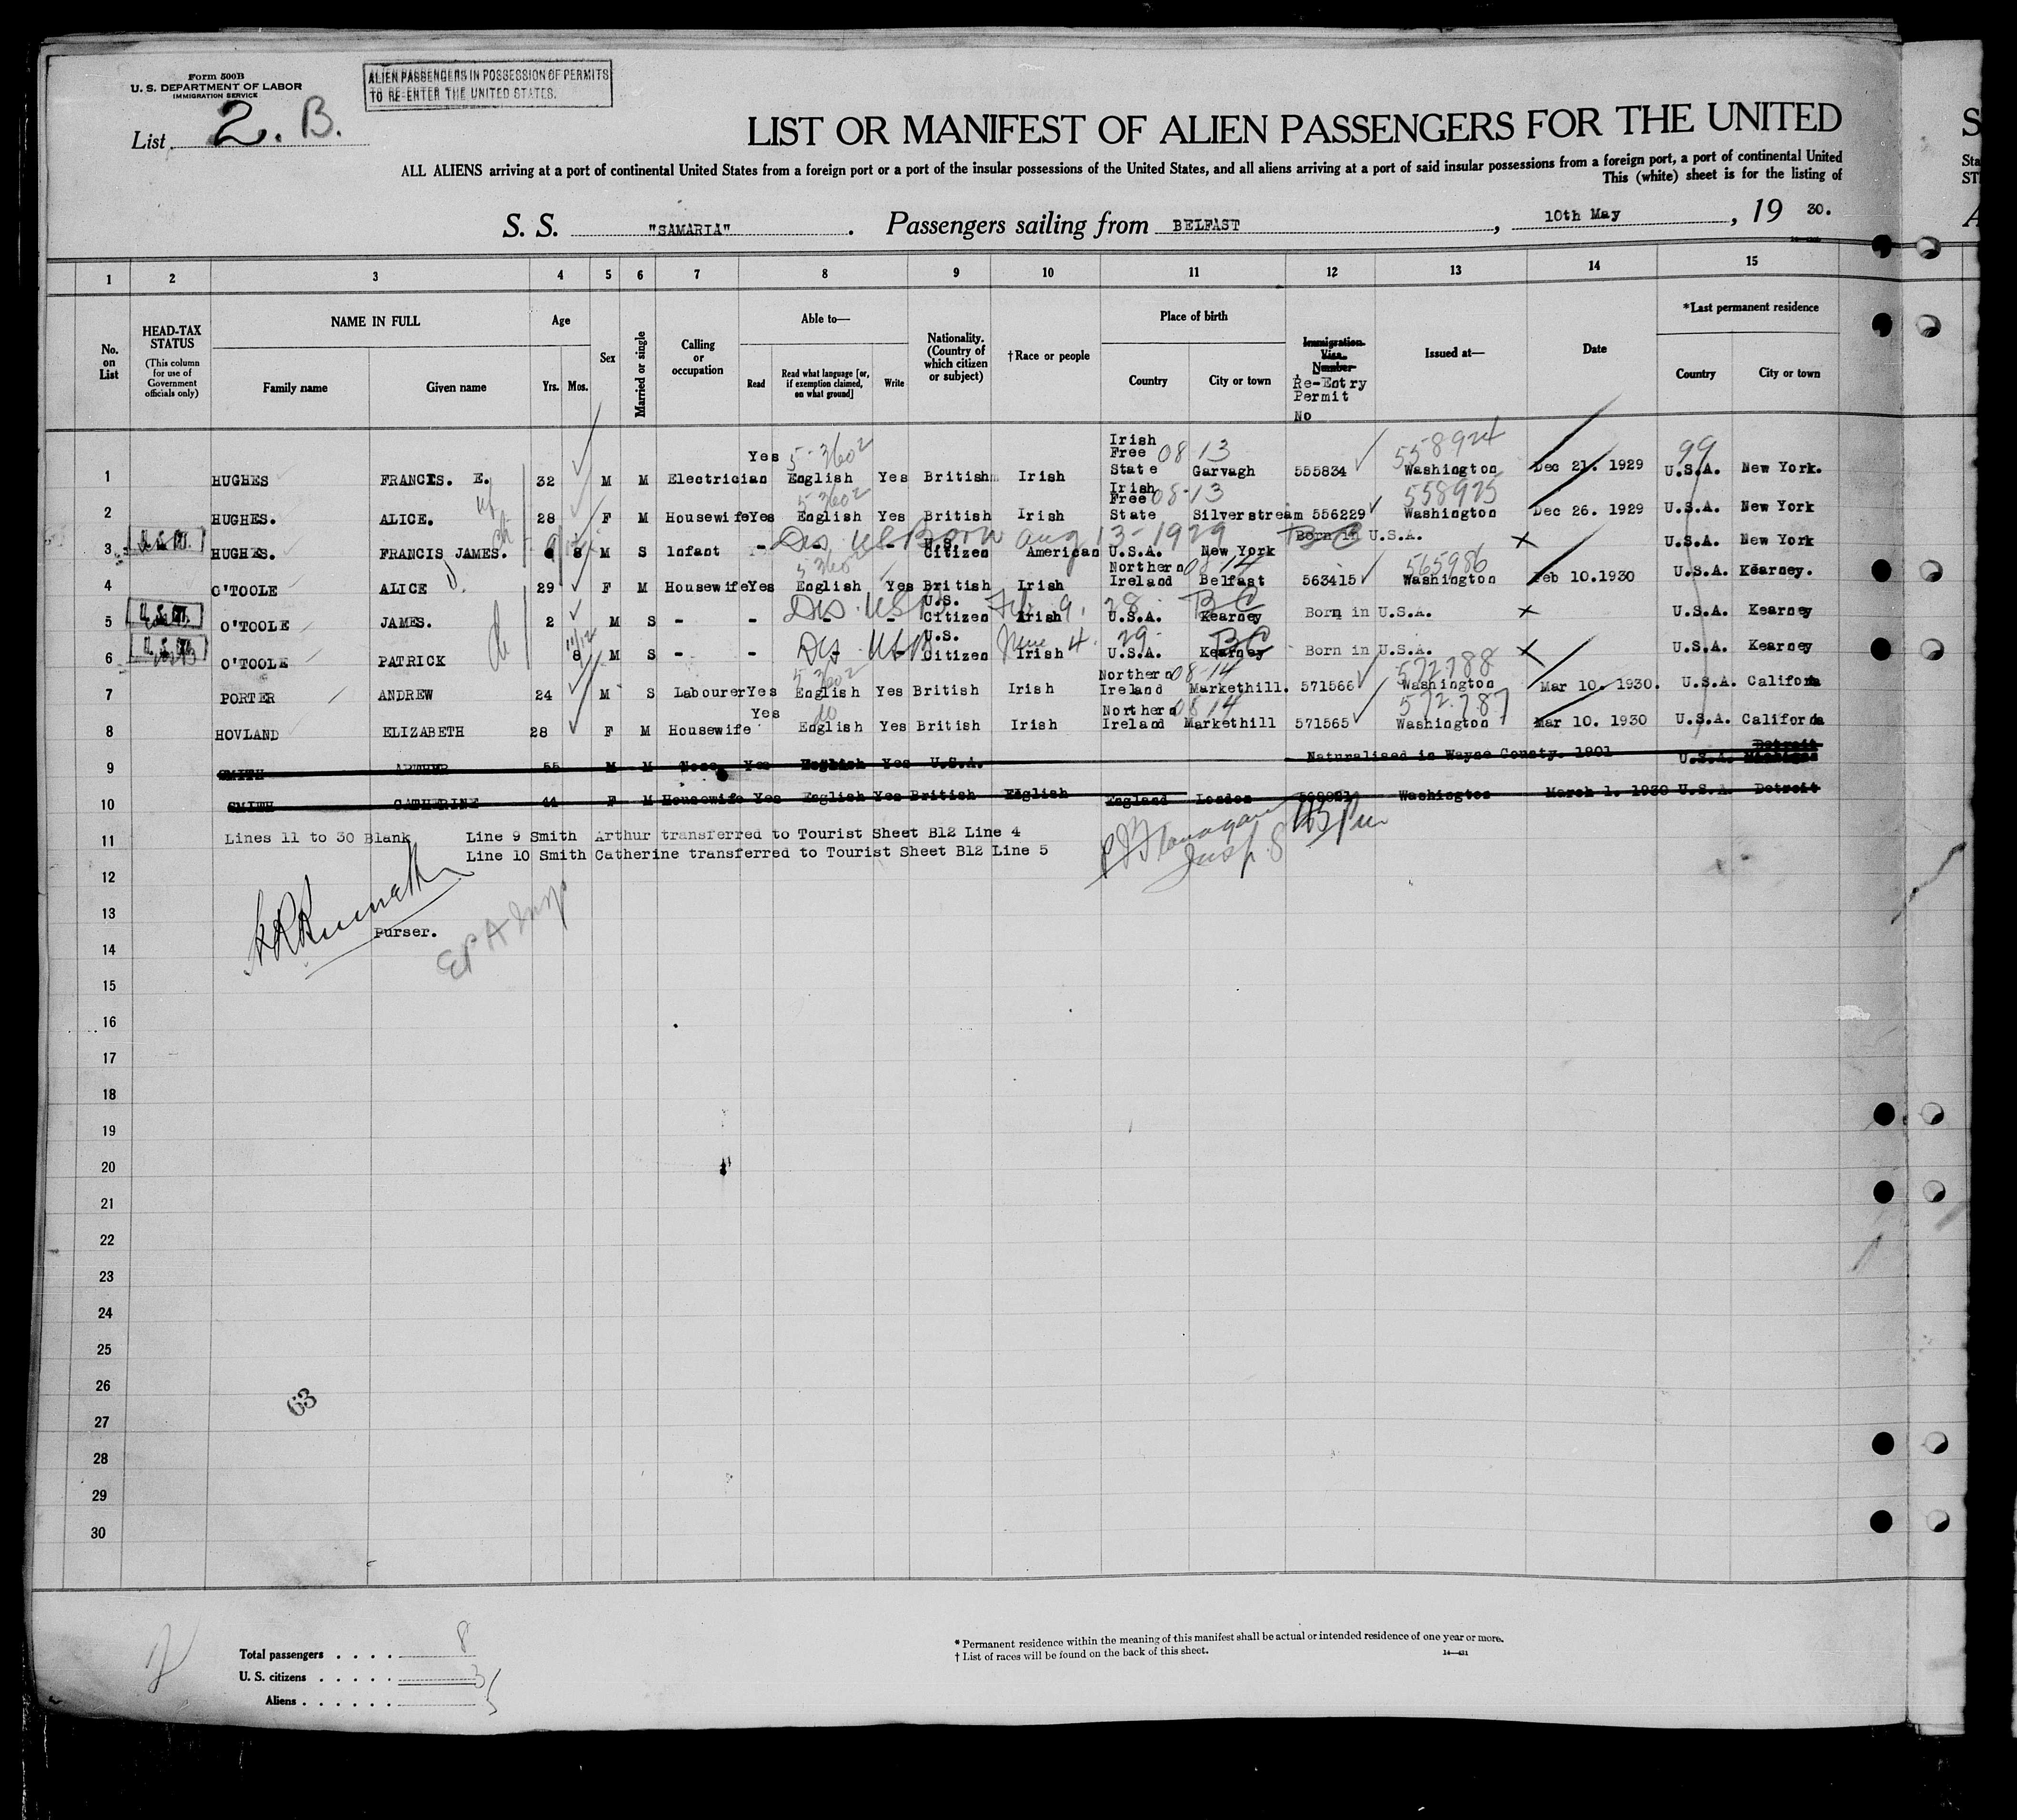 Form 500B
U. S. DEPARTMENT OF LABOR
IMMIGRATION SERVICE
ALIEN PASSENGERS IN POSSESSION OF PERMITS
TO RE-ENTER THE UNITED STATES.
List 2. B.
LIST OR MANIFEST OF ALIEN PASSENGERS FOR THE UNITED
ALL ALIENS arriving at a port of continental United States from a foreign port or a port of the insular possessions of the United States, and all aliens arriving at a port of said insular possessions from a foreign port, a port of continental United
This (white) sheet is for the listing of
S. S. "SAMARIA". Passengers sailing from BELFAST, 10th May, 19 30.
1 2 3 4 5 6 7 8 9 10 11 12 13 14 15
No. on List
HEAD-TAX STATUS
(This column for use of Government officials only)
NAME IN FULL
Family name Given name
Age
Yrs. Mos.
Sex
Married or single
Calling or occupation
Able to—
Read
Read what language [or, if exemption claimed, on what ground]
Write
Nationality. (Country of which citizen or subject)
†Race or people
Place of birth
Country City or town
Immigration Visa Number
Re-Entry Permit No
Issued at—
Date
*Last permanent residence
Country City or town
1 HUGHES FRANCIS. E. 32 M M Electrician Yes English 5-3602 Yes British Irish Irish Free State 08 13 Garvagh 555834 558924 Washington Dec 21. 1929 99 U.S.A. New York.
2 HUGHES. ALICE. 28 F M Housewife Yes English 5 3602 Yes British Irish Irish Free State 08-13 Silverstream 556229 558925 Washington Dec 26. 1929 U.S.A. New York
3 HUGHES. FRANCIS JAMES. 8 M S Infant - - - U.S. Citizen American U.S.A. New York Born in U.S.A. U.S.A. New York
Born Aug 13-1929 BC
4 O'TOOLE ALICE 29 F M Housewife Yes English 5 3602 Yes British Irish Northern Ireland 08 14 Belfast 563415 565986 Washington Feb 10.1930 U.S.A. Kearney.
5 O'TOOLE JAMES. 2 M S - - - - U.S. Citizen Irish U.S.A. Kearney Born in U.S.A. U.S.A. Kearney
Feb. 9. 28 BC
6 O'TOOLE PATRICK 8 11/12 M S - - - U.S. Citizen Irish U.S.A. Kearney Born in U.S.A. U.S.A. Kearney
June 4. 29. BC
7 PORTER ANDREW 24 M S Labourer Yes English 5 3602 Yes British Irish Northern Ireland 08-14 Markethill. 571566 572788 Washington Mar 10. 1930. U.S.A. Californa
8 HOVLAND ELIZABETH 28 F M Housewife Yes English do Yes British Irish Northern Ireland 08 14 Markethill 571565 572787 Washington Mar 10. 1930 U.S.A. Californa
9 SMITH ARTHUR 55 M M None Yes English Yes U.S.A. Naturalised in Wayne County. 1901 U.S.A. Detroit Michigan
10 SMITH CATHERINE 44 F M Housewife Yes English Yes British English England London Washington March 1. 1930 U.S.A. Detroit
11 Lines 11 to 30 Blank Line 9 Smith Arthur transferred to Tourist Sheet B12 Line 4
Line 10 Smith Catherine transferred to Tourist Sheet B12 Line 5
12
13
Purser.
14
15
16
17
18
19
20
21
22
23
24
25
26
63
27
28
29
30
Total passengers 8
U. S. citizens 3
Aliens 5
* Permanent residence within the meaning of this manifest shall be actual or intended residence of one year or more.
† List of races will be found on the back of this sheet.
14—431